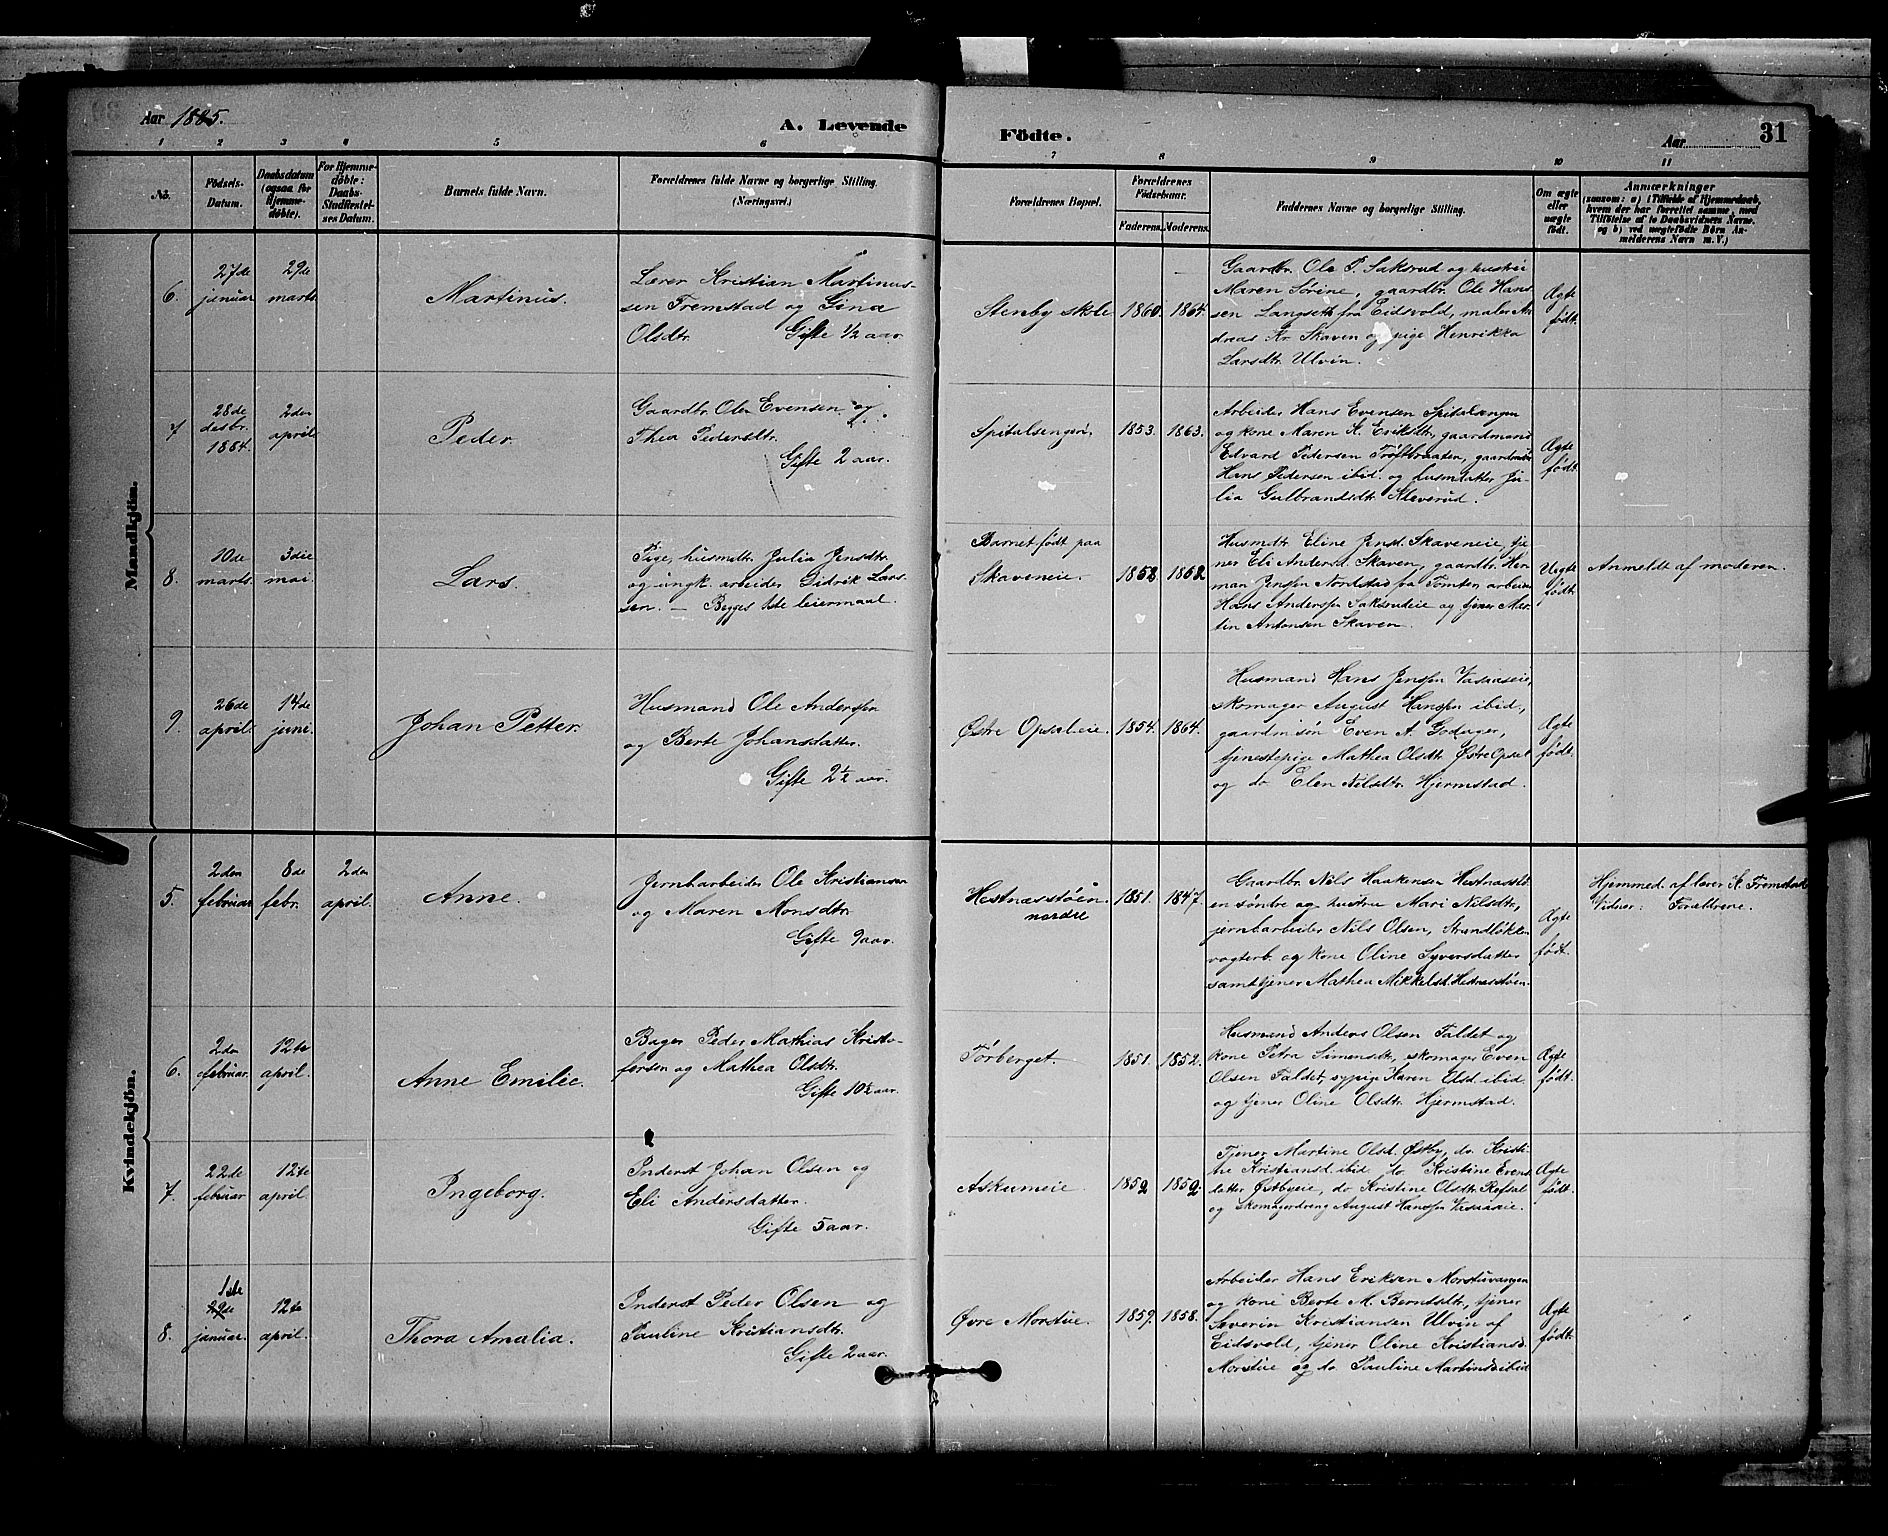 Aar 1885.
A. Levende
Födte.
Aar
31
1 2 3 4 5 6 7 8 9 10 11
No.
Födsels-Datum.
Daabsdatum (ogsaa for Hjemmedöbte).
For Hjemmedöbte: Daabs-Stadfæstelses Datum.
Barnets fulde Navn.
Forældrenes fulde Navne og borgerlige Stilling.
(Næringsvei.)
Forældrenes Bopæl.
Forældrenes Födselsaar.
Faderens. Moderens.
Faddernes Navne og borgerlige Stilling.
Om ægte eller uægte födt.
Anmærkninger
(saasom: a) i Tilfælde af Hjemmedaab,
hvem der har forrettet samme, med
Tilföielse af to Daabsvidners Navne.
og b) ved uægtefödte Börn Anmelderens Navn m. V.)
Mandkjön.
6.
27de januar
29de marts
Martinus.
Lærer Kristian Martinus-
sen Fremstad og Gina
Olsdtr.
Gifte 1/2 aar.
Stenby skole
1860. 1864.
Gaardbr. Ole P. Saksrud og hustru
Maren Sørine, gaardbr. Ole Han-
sen Langseth fra Eidsvold, maler An-
dreas Kr. Skaven og pige Henrikka
Larsdtr. Ulvin.
Ægte født.
7
28de desbr. 1884.
2den april
Peder.
Gaardbr. Ole Evensen og
Thea Pedersdtr.
Gifte 2 aar.
Spitalsengen,
1853. 1863.
Arbeider Hans Evensen Spitalængen
og kone Maren K. Eriksdtr, gaardmand
Edvard Pedersen Tøftbraaten, gaardmand
Hans Pedersen ibid. og husmdatter Ju-
lia Gulbrandsdtr. Kleverud.
Ægte født.
8.
10de marts
3die mai.
Lars.
Pige, husmdtr. Julia Jensdtr.
og ungk. arbeider Didrik Lars-
sen. — Begges 1ste leiermaal.
Barnet født paa
Skaveneie.
1858 1862
Husmdtr. Eline Jensd. Skaveneie, tje-
ner Eli Andersd. Skaven, gaardbr. Her-
man Jenssen Nordstad paa Tomten, arbeider
Hans Anderssen Saksrudeie og tjener Mar-
tin Antonsen Skaven.
Uægte født.
Anmeldt af moderen.
9.
26de april.
14de juni.
Johan Petter.
Husmand Ole Anderssen
og Berte Johansdatter.
Gifte 2 1/2 aar.
Østre Opsaleie.
1854. 1864.
Husmand Hans Jenssen Vasaaseie,
skomager August Hanssen ibid,
gaardm.søn Even A. Godager,
tjenestepige Mathea Olsdtr. Østre Opsal
og do Elen Nilsdtr. Hjermstad.
Ægte født.
Kvindekjön.
5.
2den februar
8de febr.
2den april.
Anne.
Jernbarbeider Ole Kristiansen
og Maren Monsdtr.
Gifte 9 aar.
Hestnæsstøen
nordre
1851. 1847.
Gaardbr. Nils Haakensen Hestnæsstø-
en søndre og hustru Mari Nilsdtr,
jernbarbeider Nils Olsen, Strandløkken
vogterb. og kone Oline Syversdatter
samt tjener Mathea Mikkelsd. Hestnæsstøen.
Ægte født.
Hjemmed. af lærer K. Fremstad
Vidner: Forældrene.
6.
2den februar.
12te april.
Anne Emilie.
Bager Peder Mathias Kristo-
fersen og Mathea Olsdtr.
Gifte 10 1/2 aar.
Tørberget.
1851. 1852.
Husmand Anders Olsen Faldet og
kone Petra Simensdtr, skomager Even
Olsen Faldet, sypige Karen Olsd. ibid
og tjener Oline Olsdtr. Hjermstad.
Ægte født.
7.
22de februar
12te april.
Ingeborg.
Inderst Johan Olsen og
Eli Andersdatter.
Gifte 5 aar.
Askumeie.
1859 1859.
Tjener Martine Olsd. Østby, do Kristi-
ne Kristiansd. ibid. do Kristine Evens-
datter Østbyeie, do Kristine Olsdtr. Refsal
og skomagerdreng August Hanssen Vasaaseie.
Ægte født.
8.
1ste
29de januar.
12te april.
Thora Amalia.
Inderst Peder Olsen og
Pauline Kristiansdtr.
Gifte 2 aar.
Øvre Morstue.
1857. 1858.
Arbeider Hans Eriksen Morstuvangen
og kone Berte M. Berntsdtr, tjener
Severin Kristiansen Ulvin af
Eidsvold, tjener Oline Kristiansd.
Morstue og do Pauline Martinsd. ibid
Ægte født.